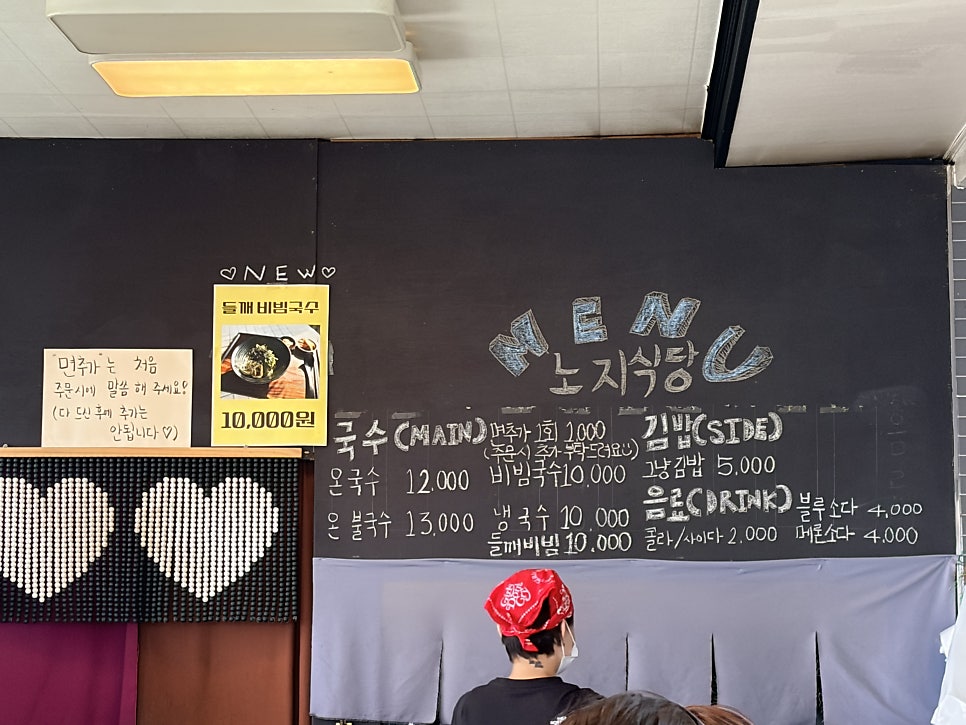 ♡NEW♡
들깨 비빔국수
10,000원
"면추가"는 처음
주문시에 말씀 해 주세요!
(다 드신 후에 추가는
안됩니다♡)
MENU
노지식당
국수(MAIN)
면추가 1회 1,000
(주문시 추가 부탁드려요☺)
온국수 12.000
비빔국수 10,000
온 불국수 13,000
냉국수 10,000
들깨비빔 10,000
김밥(SIDE)
그냥김밥 5,000
음료(DRINK)
콜라/사이다 2.000
블루소다 4,000
메론소다 4,000